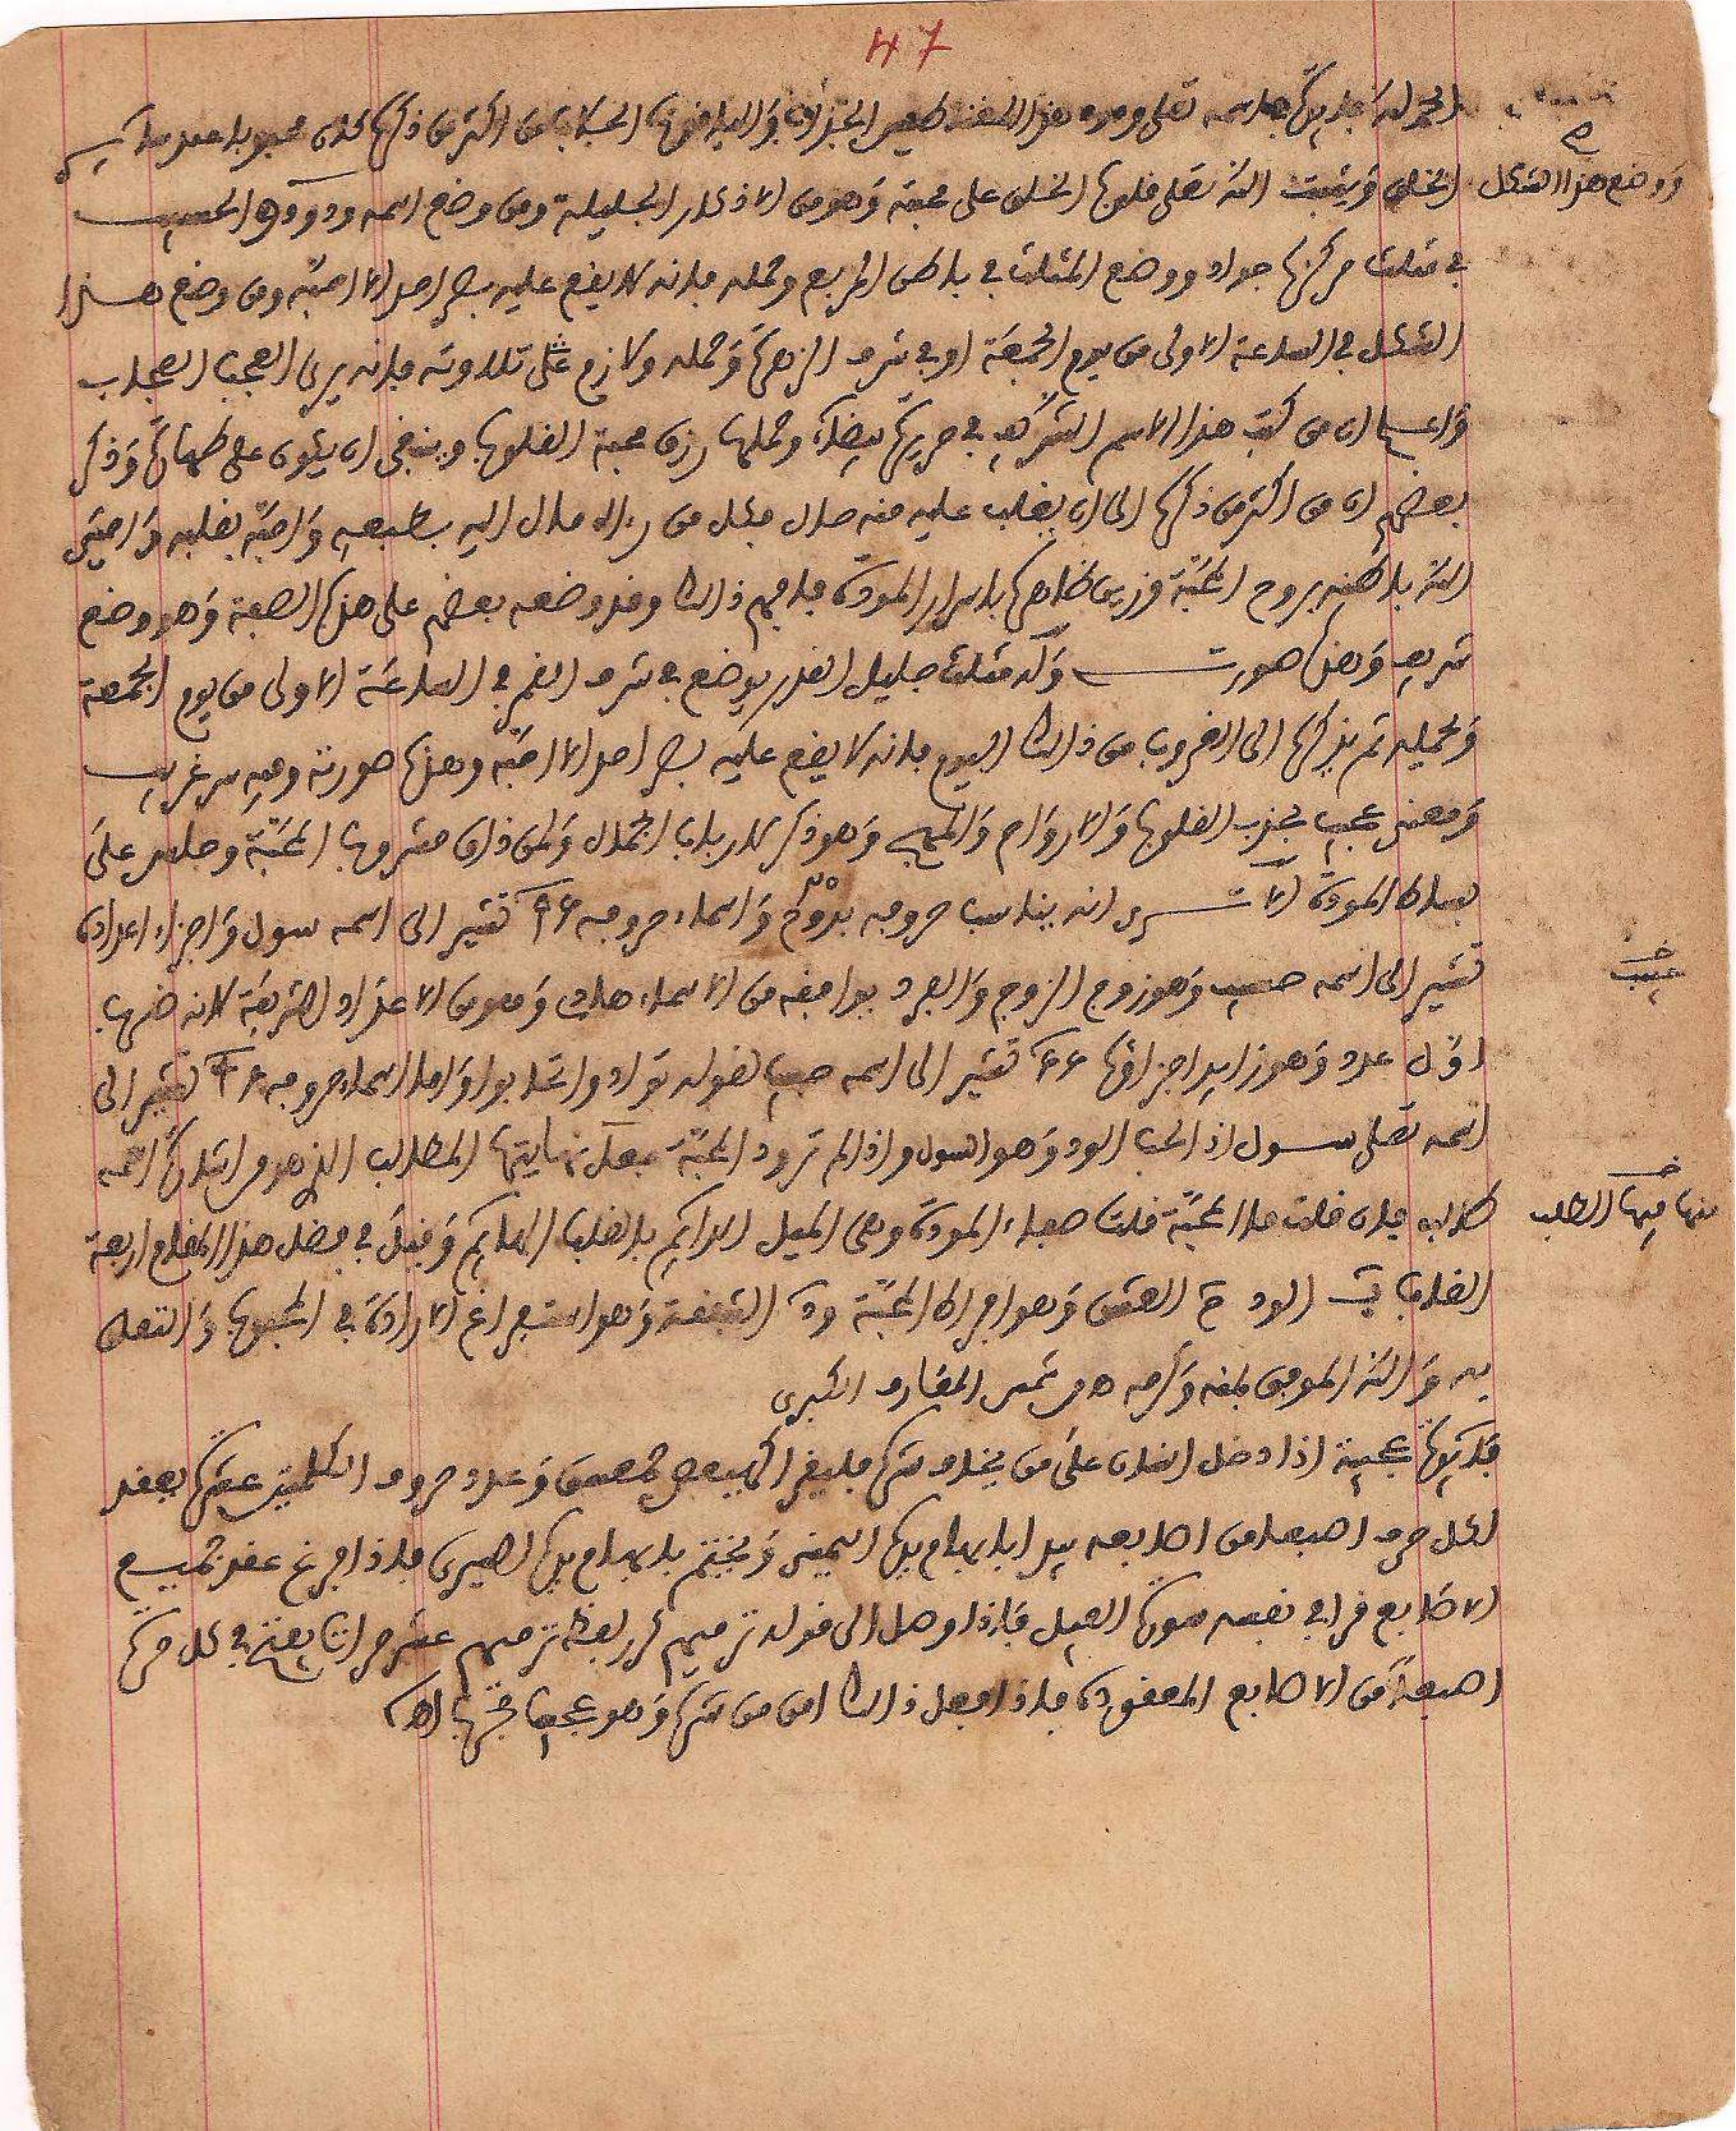 47
الحمد لله فايدة اسمه تعلى ودود هذا اللفظ من اكثر من ذكره كان محبوبا عند سايـر
ووضع هذا الشكل
الخلق ويثبت الله تعلى قلوب الخلق على محبته وهو من الاذكار الجليلة ومن وضع اسمه ودود والحسيب
في مثلث مركزه جواد ووضع المثلث في باطن المربع وحمله فانه لا يقع عليه بصر احد الا احبه ومن وضع هــذا
الشكل في الساعة الاولى من يوم الجمعة او في شرف الزهرة وحمله ولازم على تلاوته فانه يرى العجب العجاب
واعلم ان من كتب هذا الاسم الشريف في حريرة بيضاء وحملها رزق محبة القلوب وينبغي ان يكون على طهارة وذكر
بعضهم ان من اكثر من ذكره الى ان يغلب عليه منه حال فكل من رءاه مال اليه بطبعه واحبه بقلبه واحيى
الله باطنه بروح المحبة وزين ظاهره باسرار المودة فافهم ذالك وقد وضعه بعضهم على هذه الصفة وهو وضع
شريف وهذه صورتـــه وله مثلث جليل القدر يوضع في شرف القمر في الساعة الاولى من يوم الجمعة
ويحمله ثم يذكره الى الغروب من ذالك اليوم فانه لا يقع عليه بصر احد الا احبه وهذه صورته وفيه سر غريب
ومعنى عجيب لجذب القلوب والارواح والمهج وهو ذكر لارباب الجمال ولمن ذاق مشروب المحبة وجلس على
بساط المودة الا تـــرى انه يناسب حروفه بدوح واسماء حروفه ٩٦ تشير الى اسمه سول واجزاء اعداده
تشير الى اسمه حسيب وهو زوج الزوج والفرد يوافقه من الاسماء هادي وهو من الاعداد الشريفة لانه ضرب
عجيب
اول عدد وهو زايد اجزاؤه ٢٢ تشير الى اسمه حبيب لقوله توادوا تحابوا واما اسماء حروفه ٩٦ تشير الى
اسمه تعلى ســول اذ الحب الود وهو السول واذا لم ترود المحبة فعند نهايتها المطالب الذي هو من ابتداء اسمه
طالب فان قلت ما المحبة قلت صفاء المودة وهى الميل الدايم بالقلب الهايم وقيل في فضل هذا المقام اربعة
منها فيها الطلب
الود العشق وهو افراط المحبة الشغفة وهو استفراغ الارادة في المحبوب والتعلق
به والله الموفق بمنه وكرمه اه من شمس المعارف الكبرى
فايدة عجيبة اذا دخل انسان على من يخاف شره فليقرا كهيعص حمعسق وعدد حروف الكلمتين عشرة يعقد
لكل حرف اصبعا من اصابعه يبدا بابهام يده اليمنى ويختم بابهام يده اليسرى فاذا فرغ عقد جميع
الاصابع قرا في نفسه سورة الفيل فاذا وصل الى قوله ترميهم كرر لفظة ترميهم عشر مرات يفتح في كل مرة
اصبعا من الاصابع المعقودة فاذا فعل ذالك امن من شره وهو عجيب مجرب اه